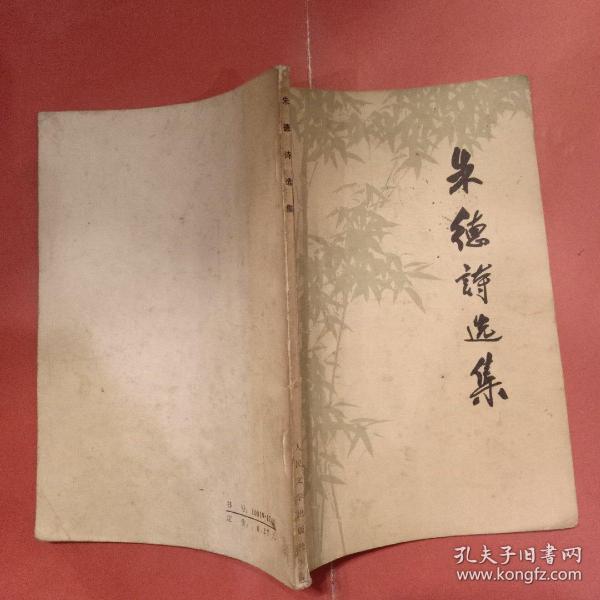 朱德詩选集
朱德诗选集
人民文学出版社
书号
定价
孔夫子旧书网
www.kongfz.com